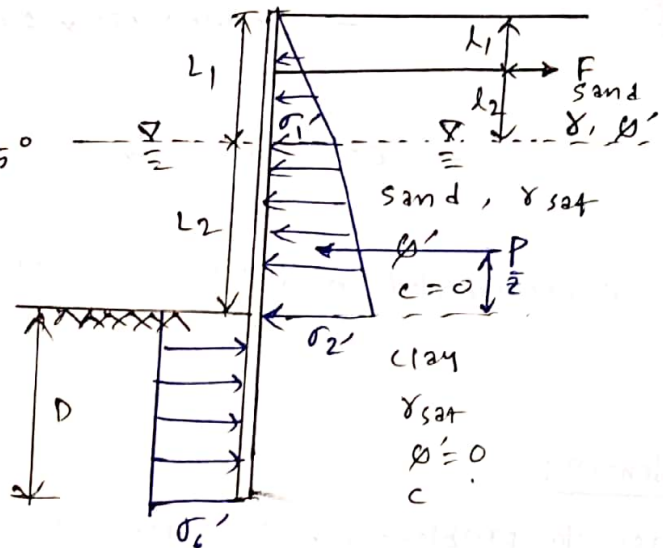 L1
l1
F
sand
γ, ø'
l2
σ1'
5°
L2
sand, γsat
ø'
c = 0
P
z̄
σ2'
clay
γsat
ø' = 0
c
D
σ6'